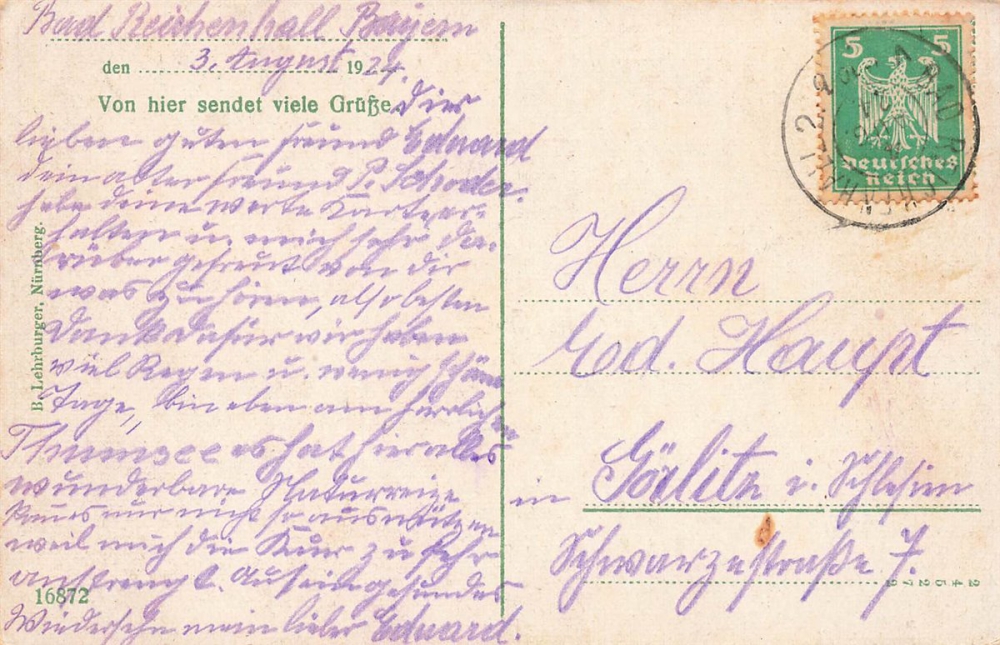 Bad Reichenhall Bayern
den 3. August 1924.
Von hier sendet viele Grüße Dir
lieben guten Freund Eduard
dein alter Freund P. Schroder.
habe deine werte Karte er-
halten u. mich sehr da-
rüber gefreut von dir
was zu hören, also besten
Dank dafür wir haben
viel Regen u. wenig schöne
Tage, bin eben am herrlichen
Thumsee es hat hier alles
wunderbare Naturreize
kann es nur nicht so ausnützen
weil mich die Kur zu sehr
anstrengt. Auf ein gesundes
Wiedersehn mein lieber Eduard.
B. Lehrburger, Nürnberg.
16872
5 5
Deutsches
Reich
Herrn
Ed. Haupt
in Görlitz i. Schlesien
Schwarzestraße 7.